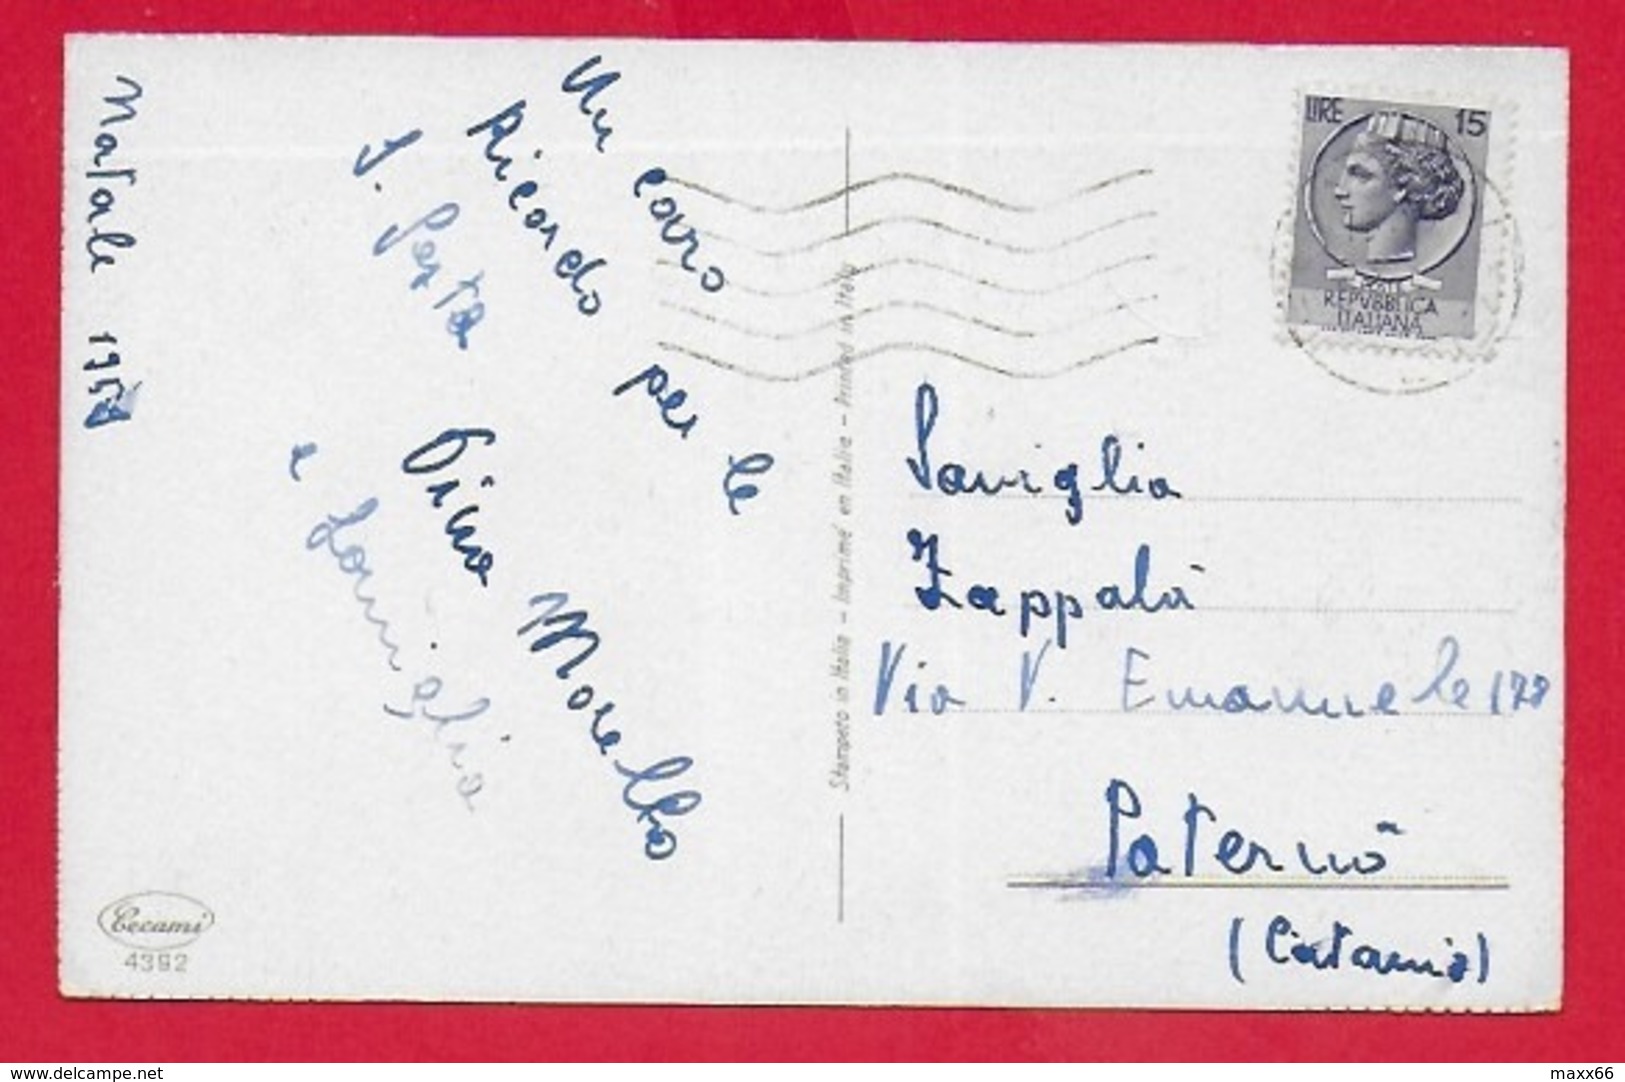 Natale 195
Un caro
Ricordo per le
S. Feste
Pino Morello
e famiglia
Cecami
4392
Stampato in Italia – Imprimé en Italie – Printed in Italy
LIRE 15
REPVBBLICA
ITALIANA
Famiglia
Zappalà
Via V. Emanuele 178
Paternò
(Catania)
delcampe.net
maxx66